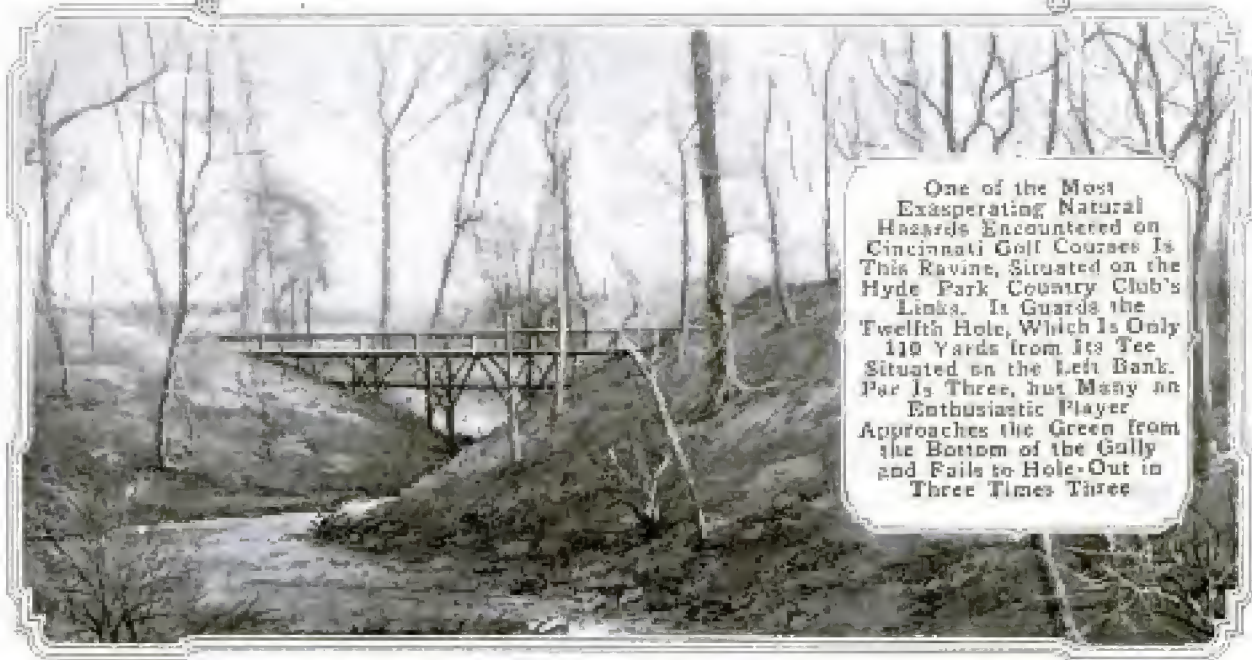 One of the Most
Exasperating Natural
Hazards Encountered on
Cincinnati Golf Courses Is
This Ravine, Situated on the
Hyde Park Country Club's
Links. It Guards the
Twelfth Hole, Which Is Only
110 Yards from Its Tee
Situated on the Left Bank.
Par Is Three, but Many an
Enthusiastic Player
Approaches the Green from
the Bottom of the Gully
and Fails to Hole-Out in
Three Times Three